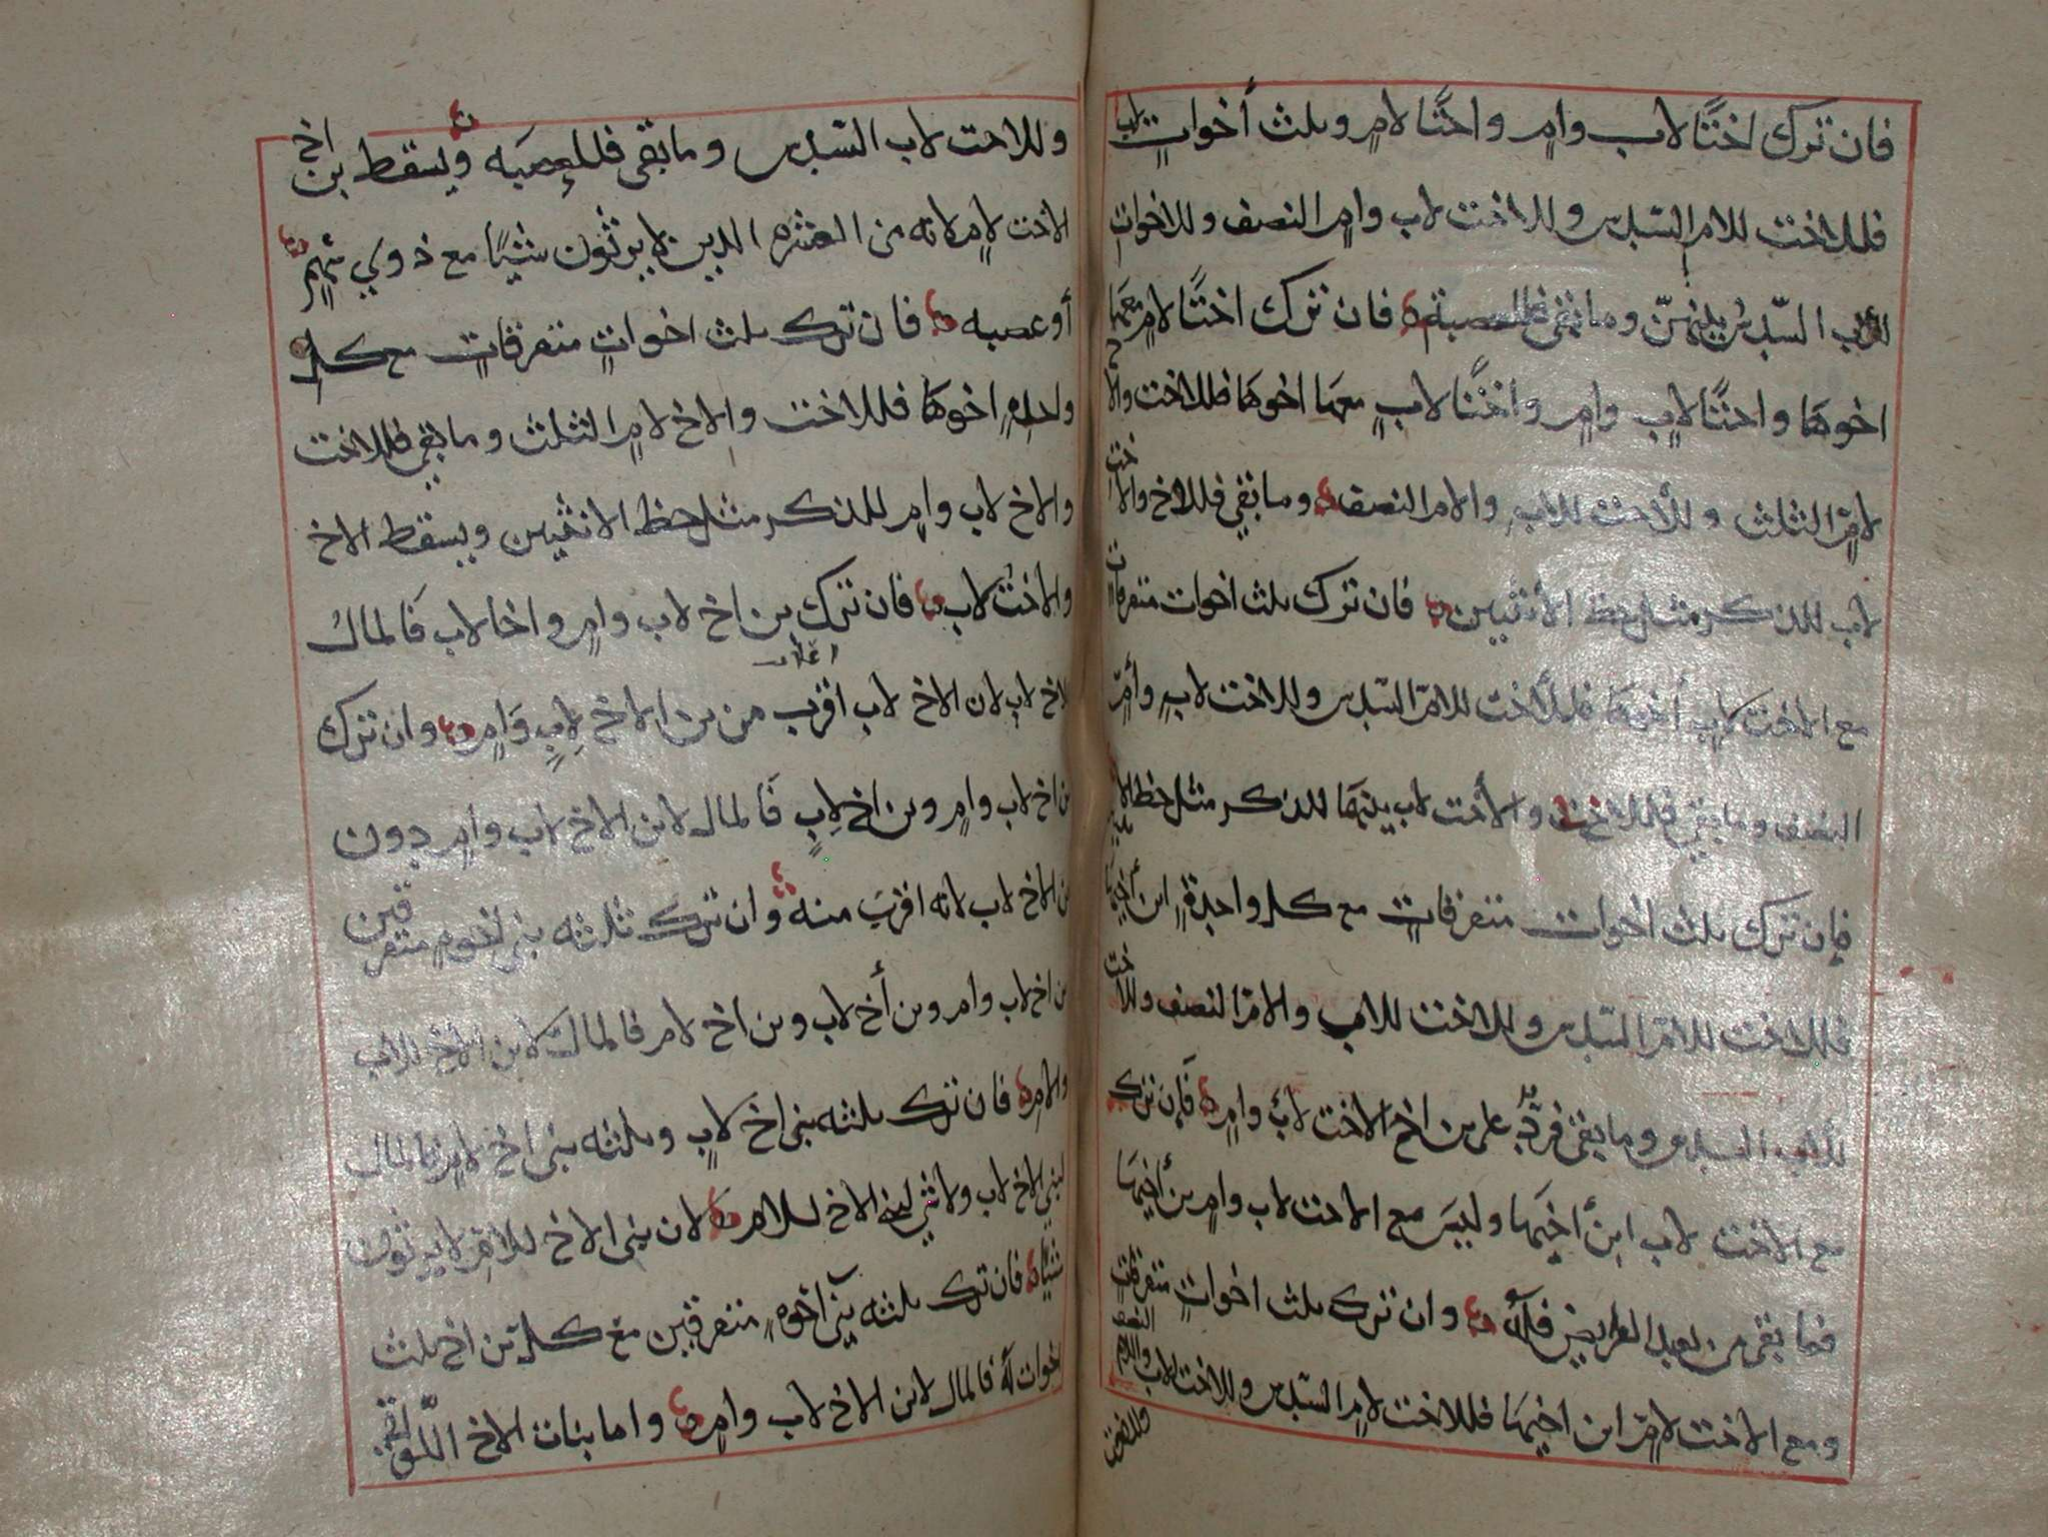 فان ترك اختًا لاب وامٍ واختًا لامٍ وثلث أخواتٍ لاب
فللاخت للام السدس وللاخت لاب وامٍ النصف وللاخوات
للأب السدس بينهنّ وما بقي فللعصبة فان ترك اختًا لامٍ معها
اخوها واختًا لابٍ وامٍ واختًا لابٍ معها اخوها فللاخت والاخ
لامٍ الثلث وللأخت للاب والام النصف وما بقي فللاخ والاخت
لاب للذكر مثل حظ الأنثيين فان ترك ثلث اخوات متفرقات
مع الاخت لاب أخوها فللأخت للام السدس وللاخت لابٍ وأمٍ
النصف وما بقي فللاخ والأخت لاب بينهما للذكر مثل حظ الانثيين
فإن ترك ثلث اخوات متفرقاتٍ مع كل واحدةٍ ابن أخيها
فللاخت للام السدس وللاخت للاب والام النصف وللاخت
للاب السدس وما بقي فردّ على بن اخ الاخت لاب وامٍ فإن ترك
مع الاخت لاب ابن أخيها وليس مع الاخت لاب وامٍ بن أخيها
فما بقي من بعد الفرايض فله وان ترك ثلث اخواتٍ متفرقات
ومع الاخت لامٍ ابن اخيها فللاخت لامٍ السدس وللاخت لاب والام النصف
وللاخت
وللاخت لاب السدس وما بقي فللعصبه ويسقط بن اخ
الاخت لامٍ لانه من العشره الذين لا يرثون شيًا مع ذوي سهمٍ
أو عصبه فان ترك ثلث اخواتٍ متفرقاتٍ مع كل
واحدةٍ اخوها فللاخت والاخ لامٍ الثلث وما بقي فللاخت
والاخ لاب وامٍ للذكر مثل حظ الانثيين ويسقط الاخ
والاخت لاب فان ترك بن اخ لاب وامٍ واخا لاب فالمال
للاخ لاب لان الاخ لاب اقرب من بن الاخ لابٍ وَامٍ وان ترك
بن اخ لاب وامٍ وبن اخ لابٍ فَالمال لابن الاخ لاب وامٍ دون
بن الاخ لاب لانه اقرب منه وان ترك ثلثه بني اخوه متفرقين
بن اخ لاب وام وبن أخ لاب وبن اخ لام فالمال لابن الاخ للاب
والام فان ترك ثلثه بني اخ لابٍ وثلثه بني اخ لامٍ فالمال
لبني الاخ لاب ولا شي لبني الاخ للام لان بني الاخ للام لا يرثون
شيًا فان ترك ثلثه بني اخوه متفرقين مع كل بن اخ ثلث
اخوات له فالمال لابن الاخ لاب وامٍ واما بنات الاخ اللواتي